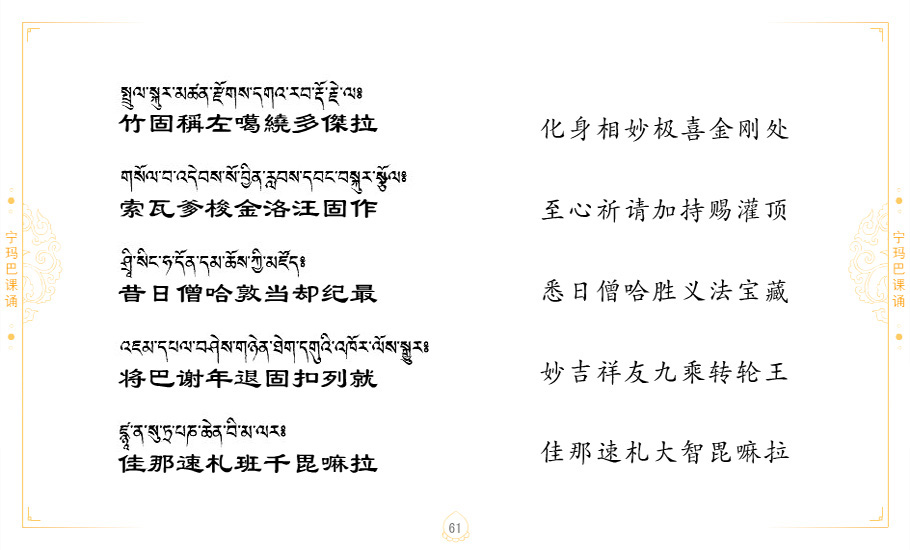 སྤྲུལ་སྐུར་མཚན་རྫོགས་དགའ་རབ་རྡོ་རྗེ་ལ༔
竹固稱左噶繞多傑拉
化身相妙极喜金刚处
གསོལ་བ་འདེབས་སོ་བྱིན་རླབས་དབང་བསྐུར་སྩོལ༔
索瓦爹梭金洛汪固作
至心祈请加持赐灌顶
ཤྲཱི་སིང་ཧ་དོན་དམ་ཆོས་ཀྱི་མཛོད༔
昔日僧哈敦当却纪最
悉日僧哈胜义法宝藏
འཇམ་དཔལ་བཤེས་གཉེན་ཐེག་དགུའི་འཁོར་ལོས་སྒྱུར༔
将巴谢年退固扣列就
妙吉祥友九乘转轮王
ཛྙཱ་ན་སུ་ཏྲ་པཎ་ཆེན་བི་མ་ལར༔
佳那速札班千毘嘛拉
佳那速札大智毘嘛拉
宁玛巴课诵
宁玛巴课诵
61